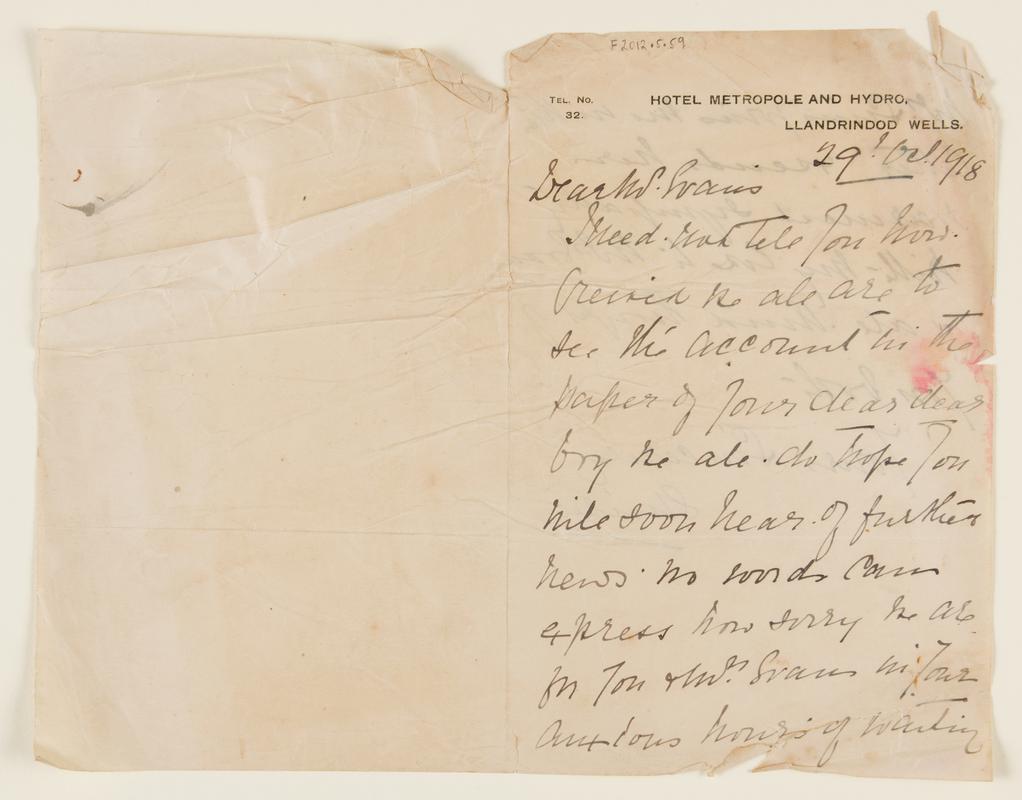 F2012.5.59
TEL. NO. 32.
HOTEL METROPOLE AND HYDRO,
LLANDRINDOD WELLS.
29th Oct. 1918
Dear Mr. Evans
I need not tell you how
grieved we all are to
see the account in the
paper of your dear dear
boy we all do hope you
will soon hear of further
news no words can
express how sorry we are
for you & Mrs. Evans in your
anxious hours of waiting